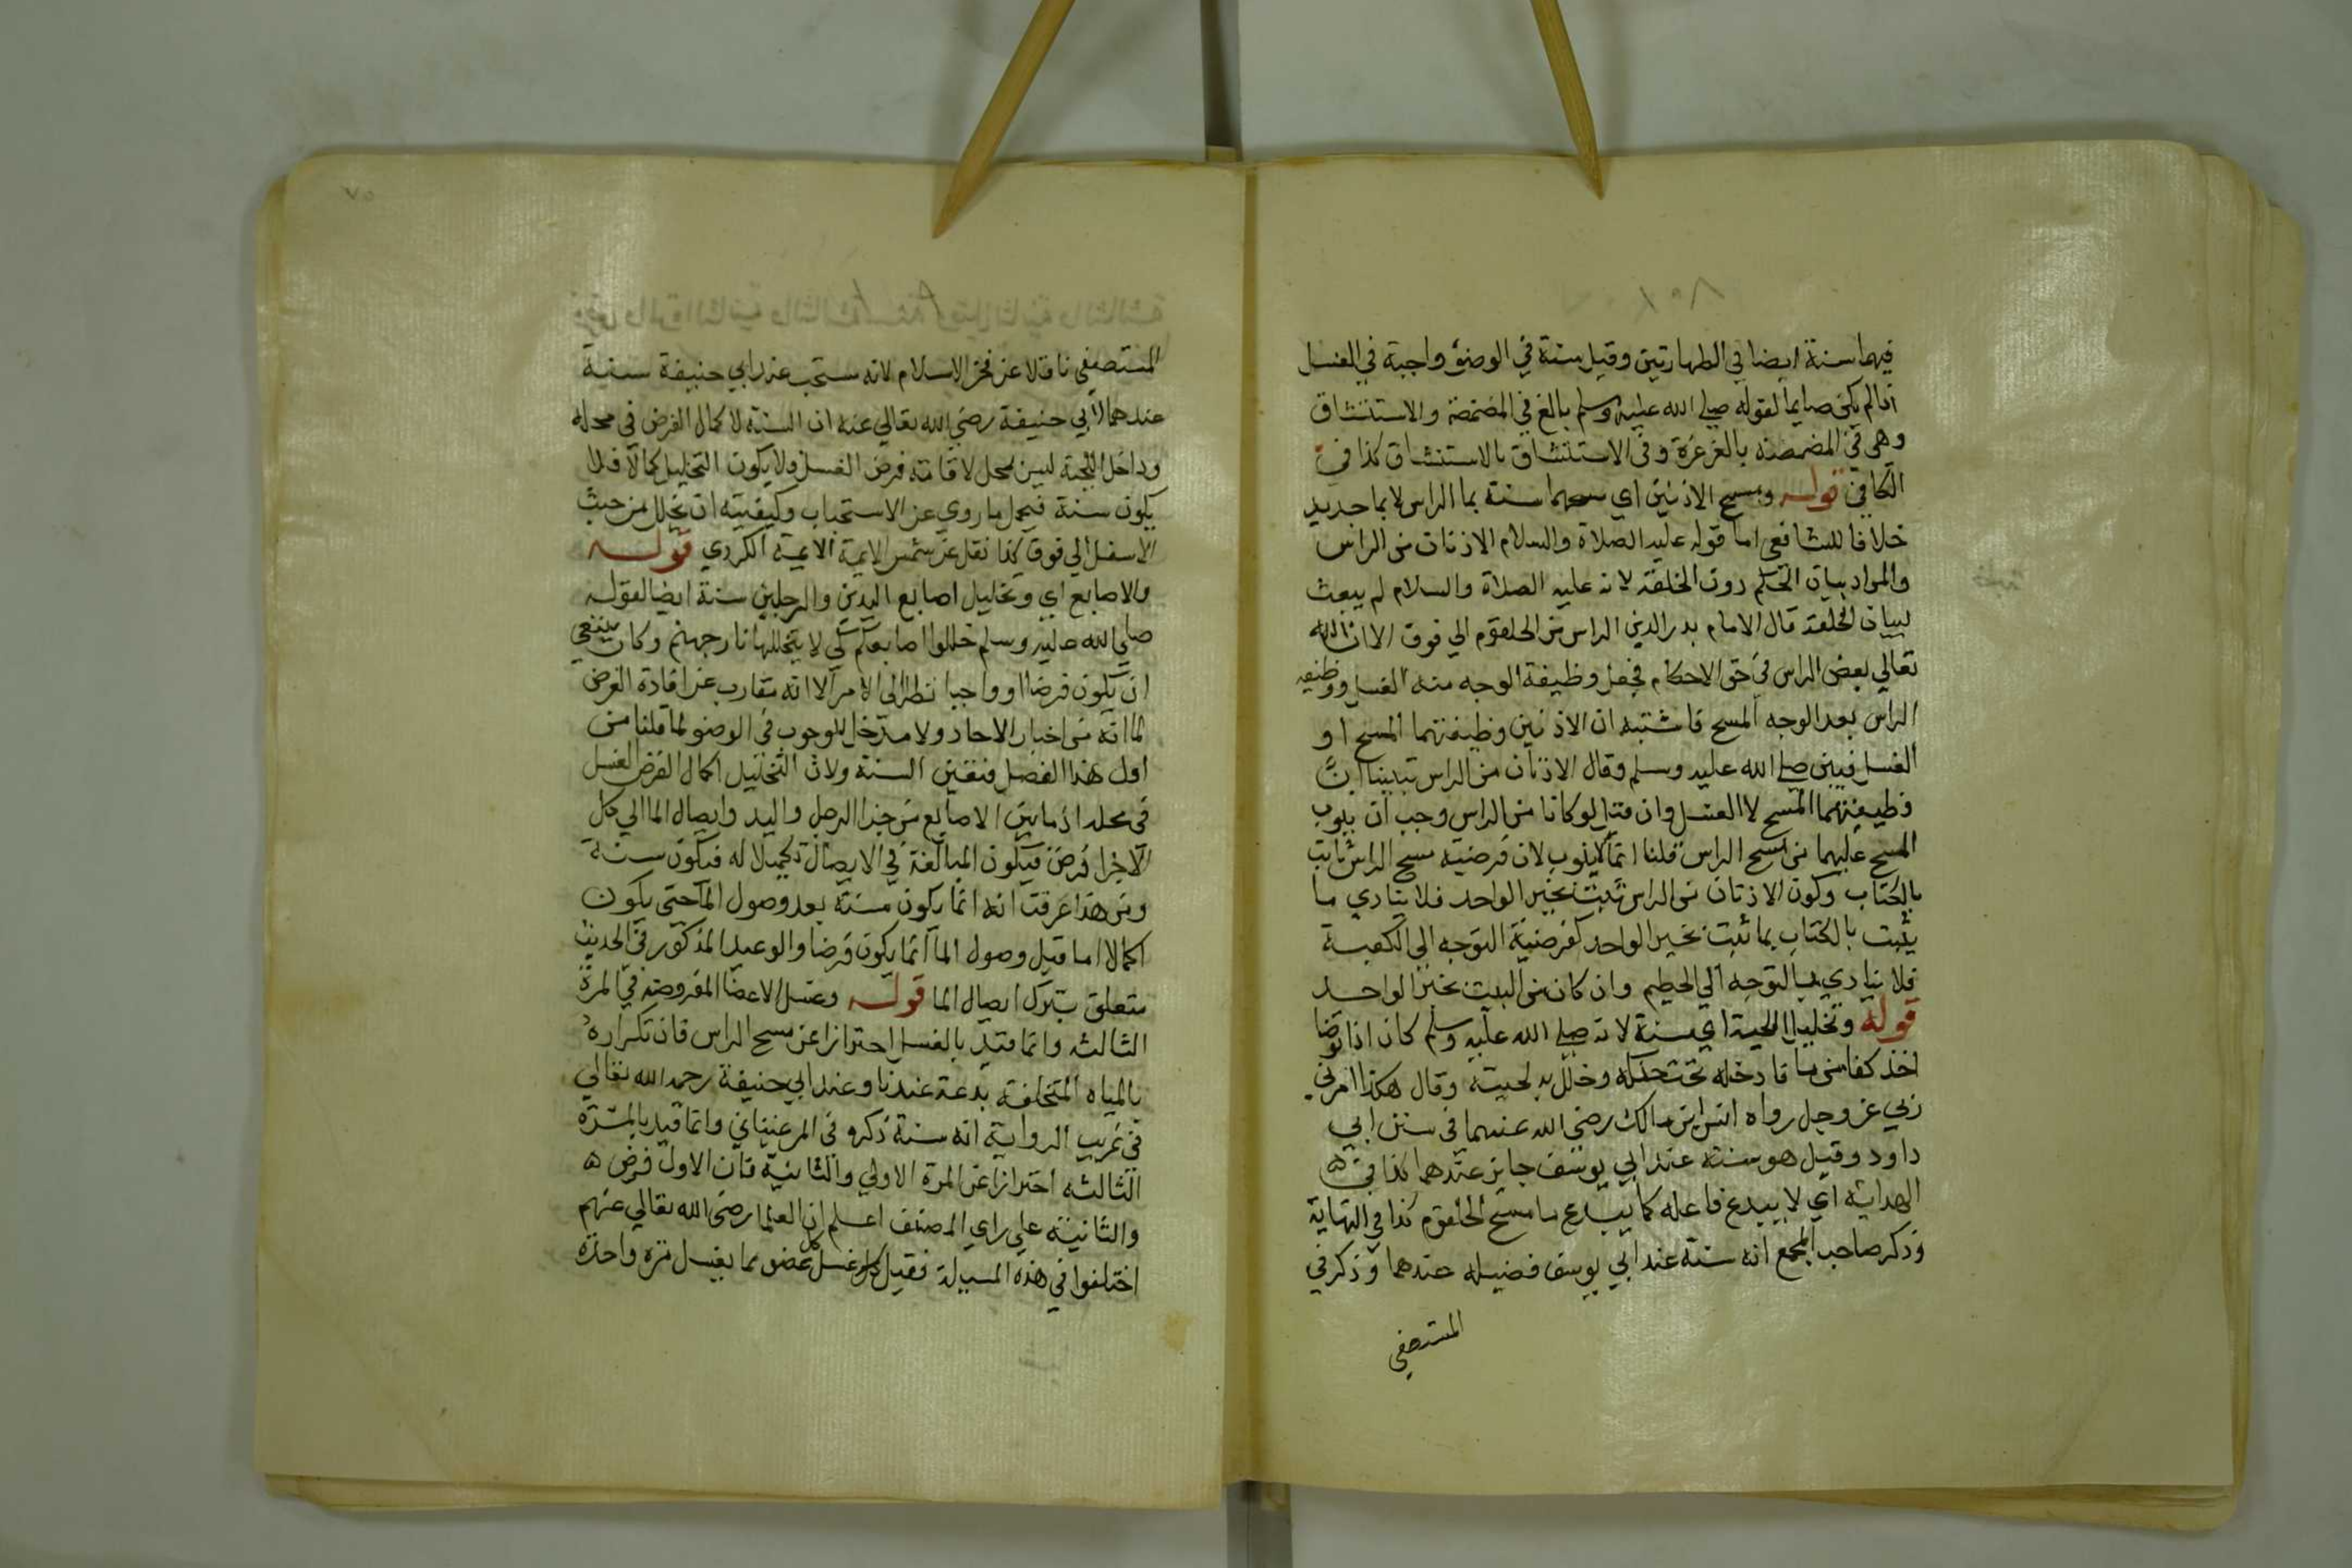 فيهما سنة ايضا في الطهارتين وقيل سنة في الوضوء واجبة في الغسل
اذا لم يكن صايما لقوله صلي الله عليه وسلم بالغ في المضمضة والاستنشاق
وهي في المضمضه بالغرغرة وفي الاستنشاق بالاستنشاق كذا في
الكافي قوله ومسح الاذنين اي مسحهما سنة بما الراس لا بما جديد
خلافا للشافعي اما قوله عليه الصلاة والسلام الاذنان من الراس
والمراد بيان الحكم دون الخلقة لانه عليه الصلاة والسلام لم يبعث
لبيان الخلقة قال الامام بدر الدين الراس من الحلقوم الي فوق الا ان الله
تعالي بعض الراس في حق الاحكام فجعل وظيفة الوجه منه الغسل ووظيفة
الراس بعد الوجه المسح فاشتبه ان الاذنين وظيفتهما المسح او
الغسل فبين صلي الله عليه وسلم وقال الاذنان من الراس تبيينا ان
وظيفتهما المسح لا الغسل وان قيل لو كانا من الراس وجب ان ينوب
المسح عليهما من مسح الراس قلنا انما لا ينوب لان فرضية مسح الراس ثابت
بالكتاب وكون الاذنان من الراس ثبت بخبر الواحد فلا يتادي ما
يثبت بالكتاب بما ثبت بخبر الواحد كفرضية التوجه الي الكعبة
فلا يتادي بالتوجه الي الحطيم وان كان من البيت بخبر الواحد
قوله وتخليل اللحية اي سنة لانه صلي الله عليه وسلم كان اذا توضا
اخذ كفا من ما فادخله تحت حنكه وخلل به لحيته وقال هكذا امرني
ربي عز وجل رواه انس ابن مالك رضي الله عنهما في سنن ابي
داود وقيل هو سنة عند ابي يوسف جايز عندهما كذا في
الهداية اي لا يبدع فاعله كما يبدع ماسح الحلقوم كذا في النهاية
وذكر صاحب المجمع انه سنة عند ابي يوسف فضيله عندهما وذكر في
المستصفي
٧٥
المستصفي ناقلا عن فخر الاسلام لانه مستحب عند ابي حنيفة سنة
عندهما لابي حنيفة رضي الله تعالي عنه ان السنة لاكمال الفرض في محله
وداخل اللحية ليس بمحل لاقامة فرض الغسل ولا يكون التخليل كمالا فلا
يكون سنة فيحمل ما روي عن الاستحباب وكيفيته ان يخلل من حيث
الاسفل الي فوق كذا نقل عن شمس الايمة الايمة الكردي قوله
والاصابع اي وتخليل اصابع اليدين والرجلين سنة ايضا لقوله
صلي الله عليه وسلم خللوا اصابعكم كي لا يتخللها نار جهنم وكان ينبغي
ان يكون فرضا او واجبا نظرا الي الامر الا انه متقارب عن افادة الفرض
لما انه من اخبار الاحاد ولا مدخل للوجوب في الوضو لما قلنا من
اول هذا الفصل فتعين السنة ولان التخليل اكمال الفرض الغسل
في محله اذ ما بين الاصابع من جزا الرجل واليد وايصال الما الي كل
الاجزا فرض فيكون المبالغة في الايصال تكميلا له فيكون سنة
ومن هذا عرفت انه انما يكون سنة بعد وصول الما حتي يكون
اكمالا اما قبل وصول الما انما يكون فرضا والوعيد المذكور في الحديث
متعلق بترك ايصال الما قوله وغسل الاعضا المفروضة في المرة
الثالثه وانما قيد بالغسل احترازا عن مسح الراس فان تكراره
بالمياه المختلفة بدعة عندنا وعند ابي حنيفة رحمه الله تعالي
في غريب الرواية انه سنة ذكره في المرغيناني وانما قيد بالمرة
الثالثه احترازا عن المرة الاولي والثانية فان الاولي فرض
والثانية علي راي المصنف اعلم ان العلما رضي الله تعالي عنهم
اختلفوا في هذه المسيلة فقيل كل غسل عضو مما يغسل مرة واحدة